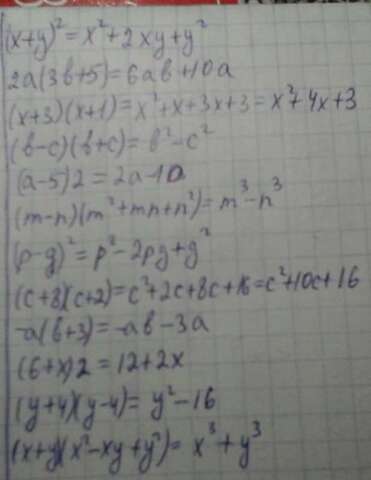 (x+y)²=x²+2xy+y²
2a(3b+5)=6ab+10a
(x+3)(x+1)=x²+x+3x+3=x²+4x+3
(b-c)(b+c)=b²-c²
(a-5)2=2a-10
(m-n)(m²+mn+n²)=m³-n³
(p-g)²=p²-2pg+g²
(c+8)(c+2)=c²+2c+8c+16=c²+10c+16
-a(b+3)=-ab-3a
(6+x)2=12+2x
(y+4)(y-4)=y²-16
(x+y)(x²-xy+y²)=x³+y³